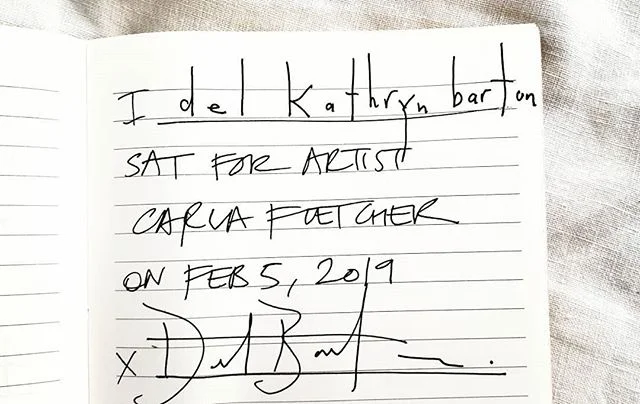 I del kathryn barton
SAT FOR ARTIST
CARLA FLETCHER
ON FEB 5, 2019
X Del Bart